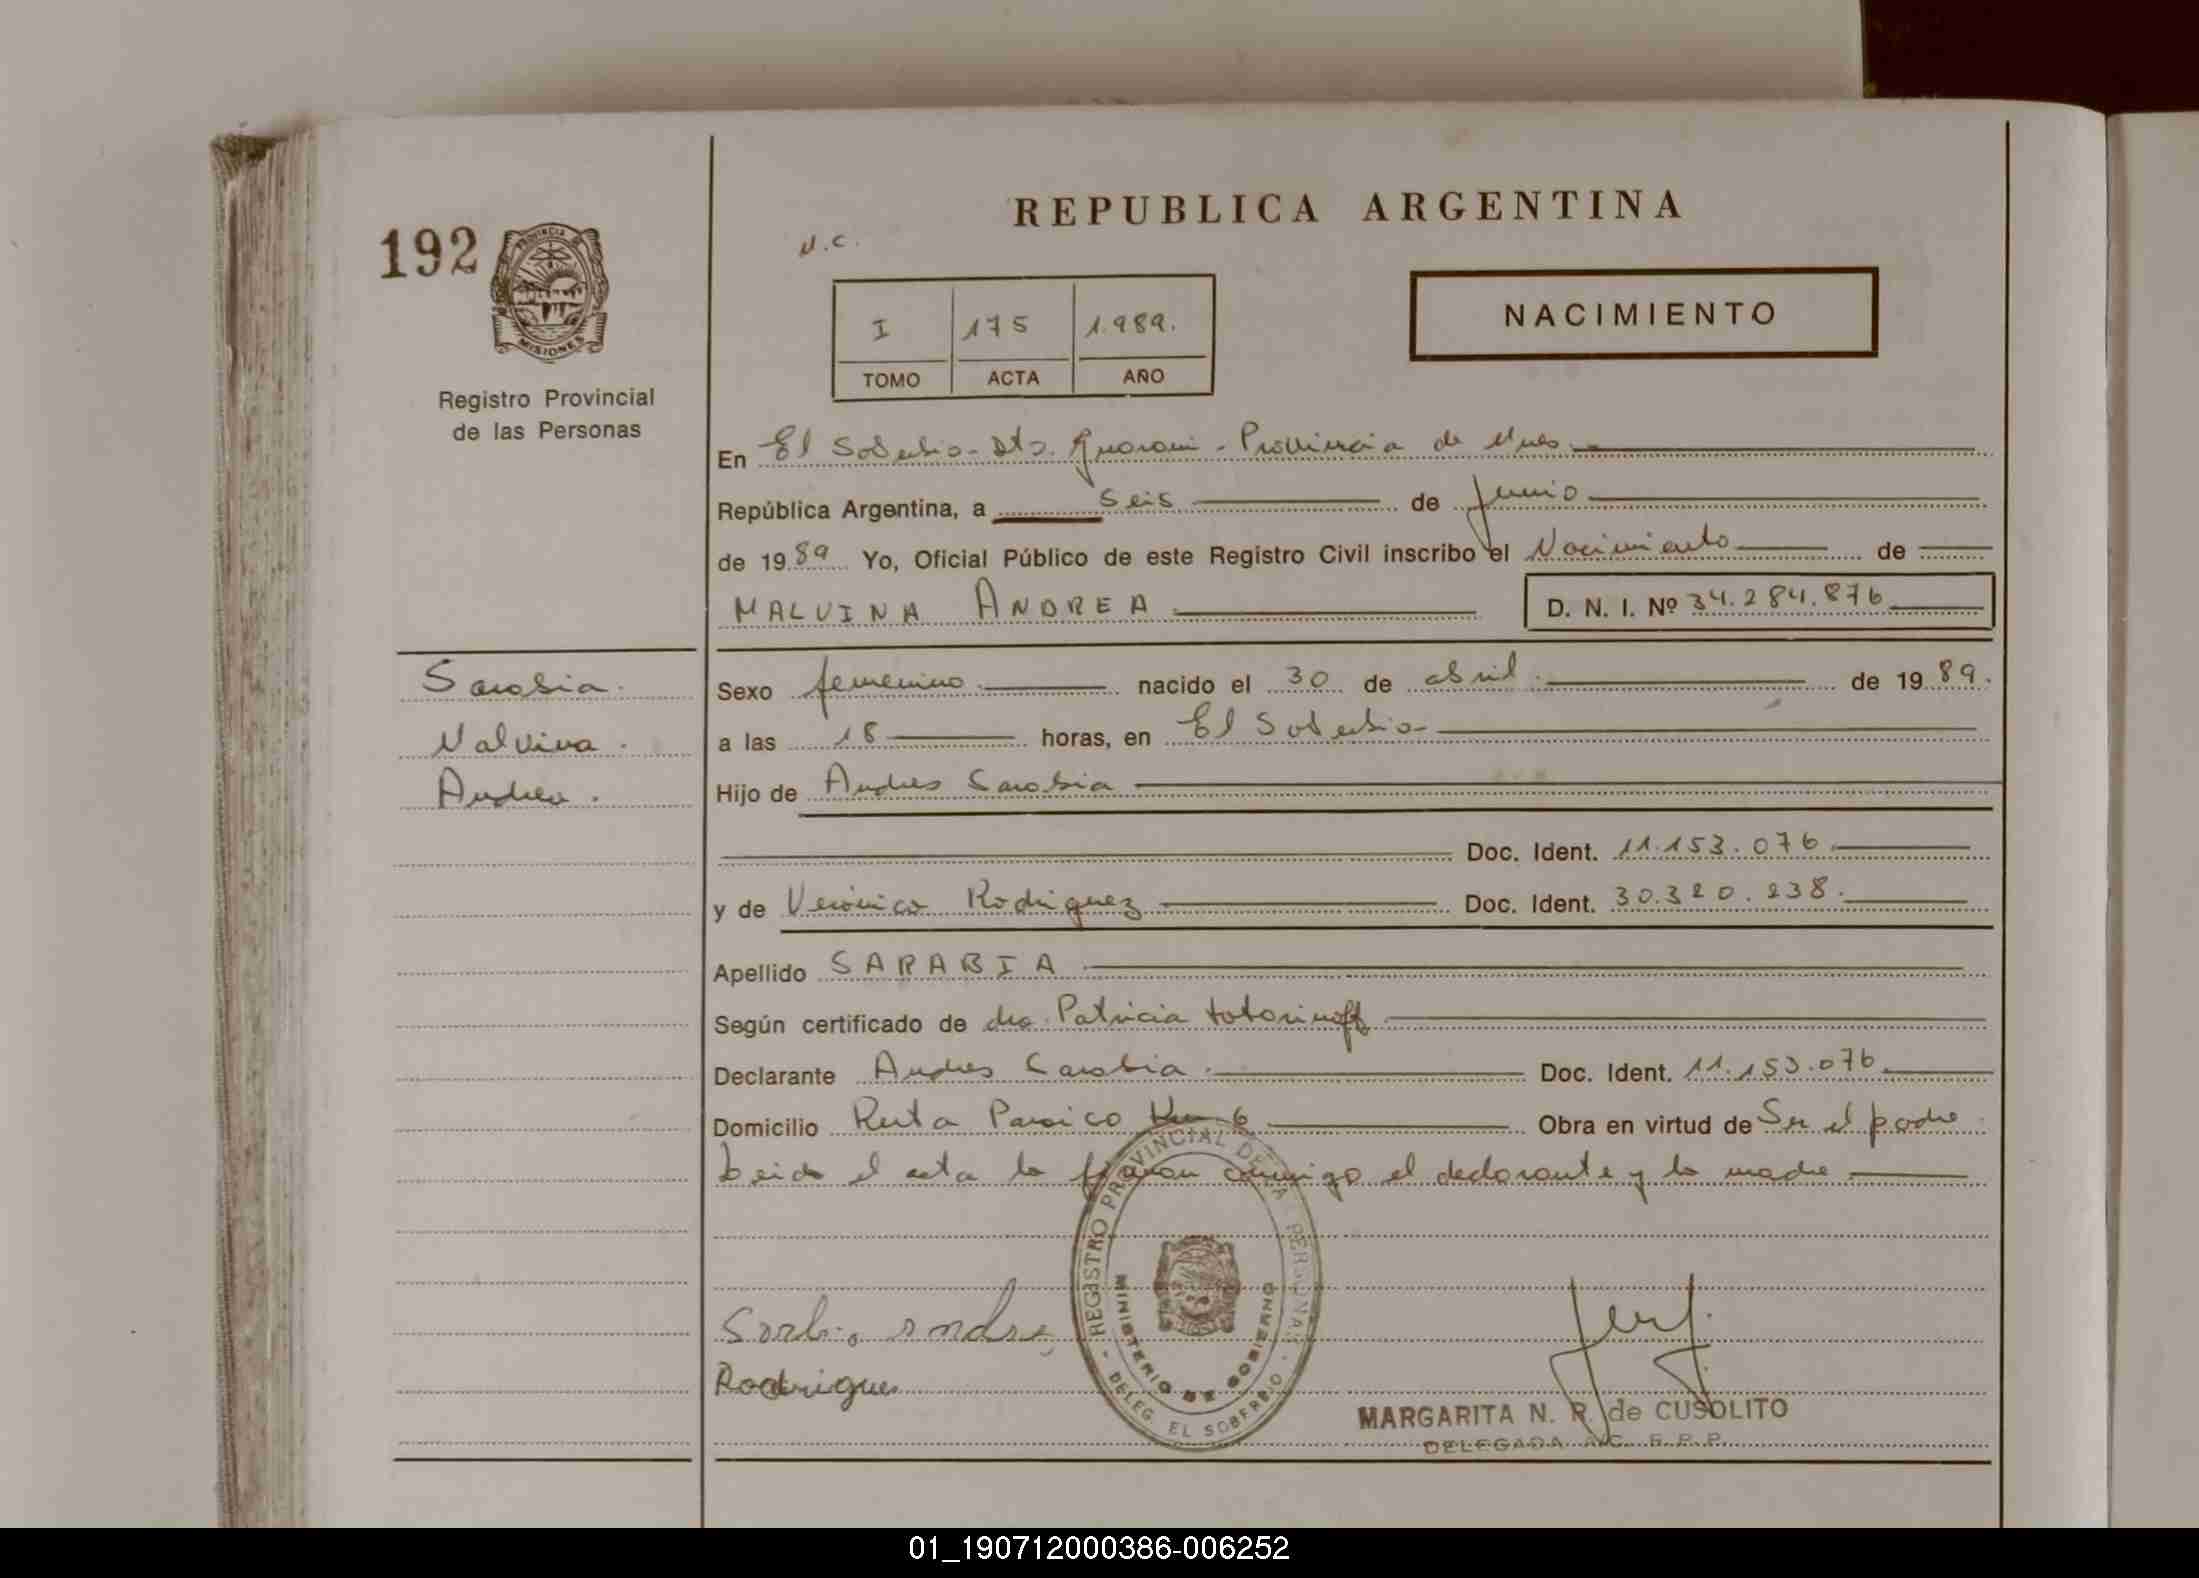 192
PROVINCIA DE
MISIONES
Registro Provincial
de las Personas
REPUBLICA ARGENTINA
N.C.
NACIMIENTO
I 175 1.989.
TOMO ACTA AÑO
En El Soberbio - Dto. Guarani - Provincia de Mnes.
República Argentina, a seis de junio
de 1989 Yo, Oficial Público de este Registro Civil inscribo el Nacimiento de
MALVINA ANDREA D. N. I. Nº 34.284.876
Sarabia.
Malvina.
Andrea.
Sexo femenino nacido el 30 de abril. de 1989.
a las 18 horas, en El Soberbio
Hijo de Andres Sarabia
Doc. Ident. 11.153.076
y de Verónica Rodriguez Doc. Ident. 30.320.238.
Apellido SARABIA
Según certificado de dra. Patricia
Declarante Andres Sarabia. Doc. Ident. 11.153.076
Domicilio Ruta Paraiso Km 6 Obra en virtud de Ser el padre
Leida el acta la firman conmigo el declarante y la madre
REGISTRO PROVINCIAL DE LA PERSONAS
MINISTERIO DE GOBIERNO
DELEG. EL SOBERBIO
Rodrigues
MARGARITA N. R. de CUSOLITO
DELEGADA A/C. R.P.P.
01_190712000386-006252